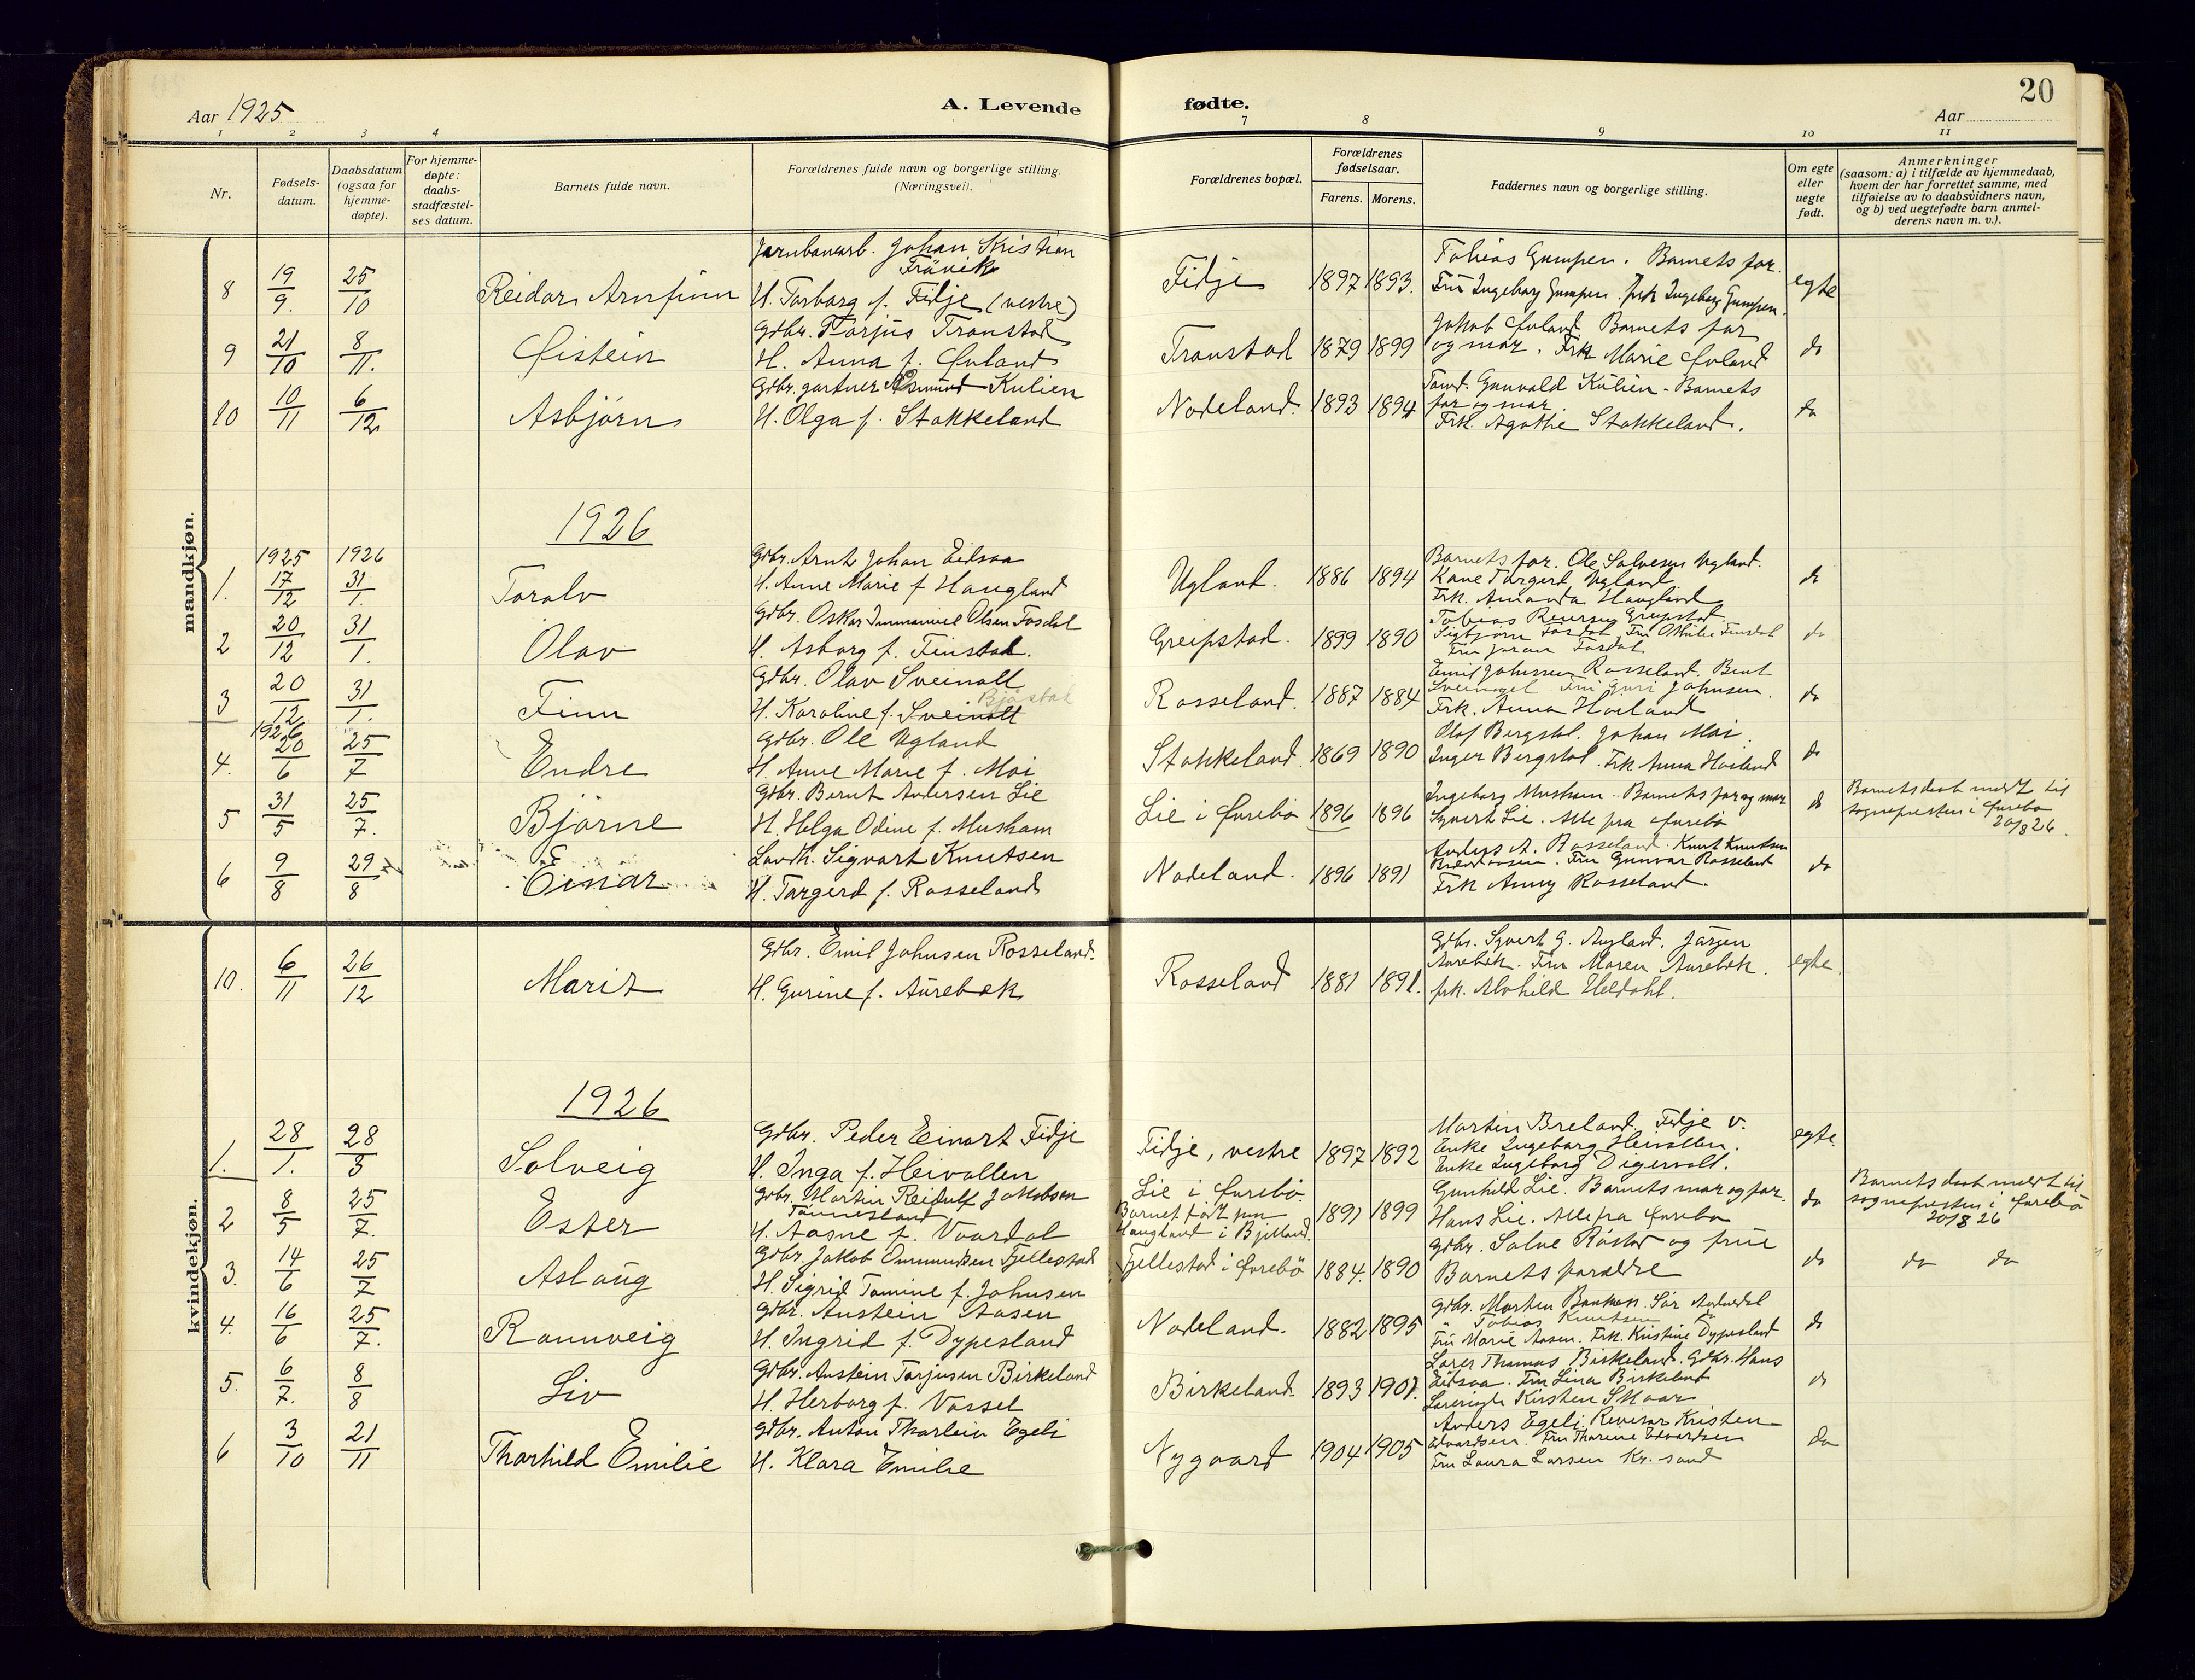 20
Aar 1925
A. Levende
fødte.
Aar
1 2 3 4 7 8 9 10 11
Nr.
Fødsels-
datum.
Daabsdatum
(ogsaa for
hjemme-
døpte).
For hjemme-
døpte:
daabs-
stadfæstel-
ses datum.
Barnets fulde navn.
Forældrenes fulde navn og borgerlige stilling.
(Næringsvei).
Forældrenes bopæl.
Forældrenes
fødselsaar.
Farens. Morens.
Faddernes navn og borgerlige stilling.
Om egte
eller
uegte
født.
Anmerkninger
(saasom: a) i tilfælde av hjemmedaab,
hvem der har forrettet samme, med
tilføielse av to daabsvidners navn,
og b) ved uegtefødte barn anmel-
derens navn m. v.).
mandkjøn.
8 19/9. 25/10 Reidar Arnfinn
Jernbanearb. Johan Kristian
H. Torborg f. Fidje (vestre)
Fidje 1897 1893.
Tobias Gumpen. Barnets far.
Frü Ingeborg Gumpen. frk Ingeborg Gumpen.
egte
9 21/10 8/11. Øistein
Gdbr. Torjüs Tronstad
H. Anna f. Øvland
Tronstad 1879 1899
Jakob Øvland Barnets far
og mor. Frk Marie Øvland
do
10 10/11 6/12 Asbjørn
Gdbr. gartner Asmünd Kulien
H. Olga f. Stokkeland
Nodeland. 1893 1894
Gunvald Külien - Barnets
far og mor.
Frk. Agathe Stokkeland.
do
1926
1925 1926
1. 17/12 31/1. Toralv
Gdbr. Arnt Johan Eidsaa
H. Anne Marie f Haugland
Ugland. 1886 1894
Barnets far. Ole Salvesen Ugland.
Kone Torgerd Ugland
Frk. Amanda Haugland
do
2 20/12 31/1. Olav
Gdbr. Oskar Immanuel Olsen Fosdal
H. Asborg f. Finstad.
Greipstad. 1899 1890
Tobias Greipstad
Sigbjørn Fosdal
Frü Fosdal
do
3 20/12 31/1. Finn
Gdbr. Olav Sveinall
H. Karoline f. Sveinall
Rosseland. 1887 1884
Emil Johnsen Rosseland. Bent
Frü Guri Johnsen.
Frk. Anna Hoiland
do
1926
4. 20/6 25/7 Endre
Gdbr. Ole Ugland
H. Anne Marie f. Moi
Stokkeland. 1869 1890
Olaf Bergstøl. Johan Moi.
Inger Bergstøl. Frk Anna Hoiland
do
5 31/5 25/7. Bjarne
Gdbr. Bernt Andersen Lie
H. Helga Odine f. Musham
Lie i Øvrebø 1896 1896
Ingeborg Musham. Barnets far og mor
Syvert Lie. Alle fra Øvrebø
do
Barnets daab meldt til
sognepresten i Øvrebø
20/8 26.
6 9/8 29/8 Einar
Landh. Sigvart Knutsen
H. Torgerd f. Rosseland
Nodeland. 1896 1891
Anders A. Rosseland. Knut Knutsen
Frü Gunvor Rosseland
Frk Anny Rosseland.
do
kvindekjøn.
10. 6/11 26/12 Marit
Gdbr. Emil Johnsen Rosseland.
H. Gurine f. Aurebæk
Rosseland 1881 1891.
Gdbr. Syvert G. Augland. Jørgen
Aurebæk. Frü Maren Aurebæk.
frk. Alvhild Heldahl.
egte.
1926
1. 28/1. 28/3 Solveig
Gdbr. Peder Einart Fidje
H. Inga f. Heivollen
Fidje, vestre 1897 1892
Martin Breland. Fidje v.
Enke Ingeborg Heivollen.
Enke Ingeborg Digervoll.
egte.
2 8/5 25/7. Ester
Gdbr. Martin Reidulf Jakobsen
Tønnesland
H. Aasne f. Vaardal
Lie i Øvrebø.
Barnet født paa
Haugland i Bjelland.
1891 1899
Gunhild Lie. Barnets mor og far.
Hans Lie. Alle fra Øvrebø
do
Barnets daab meldt til
sognepresten i Øvrebø
20/8 26
3. 14/6 25/7 Aslaug
Gdbr. Jakob Ommundsen Fjellestad
H. Sigrid Tomine f. Johnsen
Fjellestad i Øvrebö 1884. 1890
Gdbr. Salve Røstad og frue
Barnets forældre
do do do
4. 16/6 25/7. Rannveig
Gdbr. Austein Aasen
H. Ingrid f. Dypesland
Nodeland. 1882 1895
Gdbr. Morten Banken. Sør
" Tobias Knutsen
Frü Marie Aasen. Frk. Kristine Dypesland
do
5. 6/7. 8/8 Liv
Gdbr. Austein Torjusen Birkeland
H. Herborg f. Vassel
Birkeland. 1893 1901.
Lærer Thomas Birkeland. Gdbr. Hans
Eidsaa. Frü Lina Birkeland
Kirsten Skaar
do
6 3/10 21/11 Thorhild Emilie
Gdbr. Anton Thorlein Egeli
H. Klara Emilie
Nygaard 1904 1905
Anders Egeli. Revisor Kristen
Edvardsen. Frü Thorine Edvardsen
Frü Laura Larsen Kr. sand
do